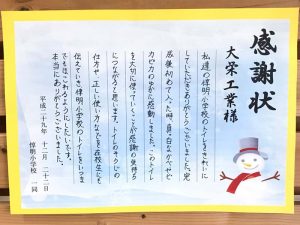 感謝状
大栄工業様
私達の惇明小学校のトイレをきれいに
していただきありがとうございました。完
成後初めて入った時、真っ白なかべやぴ
カピカのゆかに感動しました。このトイレ
を大切に使っていくことが感謝の気持ち
につながると思います。トイレのそうじの
仕方や正しい使い方などを在校生にも
伝えていき惇明小学校のトイレをいつま
でもほこれるようにしたいです。
本当にありがとうございました。
平成二十九年 十一月 二十二日
惇明小学校 一同